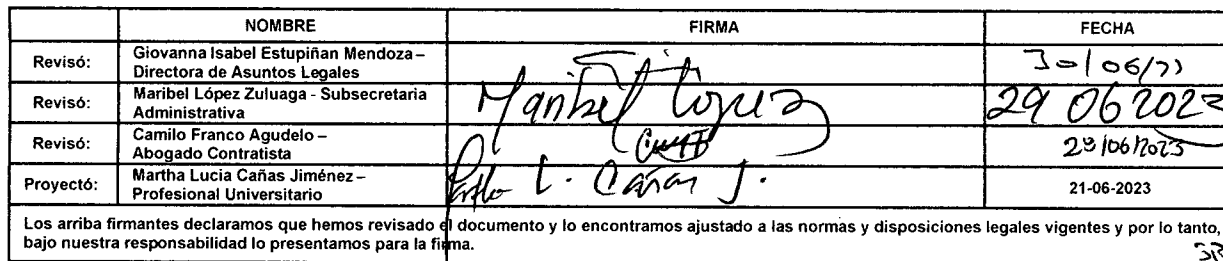 NOMBRE FIRMA FECHA
Revisó: Giovanna Isabel Estupiñan Mendoza –
Directora de Asuntos Legales 30/06/23
Revisó: Maribel López Zuluaga - Subsecretaria
Administrativa Maribel López 29 06 2023
Revisó: Camilo Franco Agudelo –
Abogado Contratista 29/06/2023
Proyectó: Martha Lucia Cañas Jiménez –
Profesional Universitario L. Cañas J. 21-06-2023
Los arriba firmantes declaramos que hemos revisado el documento y lo encontramos ajustado a las normas y disposiciones legales vigentes y por lo tanto,
bajo nuestra responsabilidad lo presentamos para la firma.